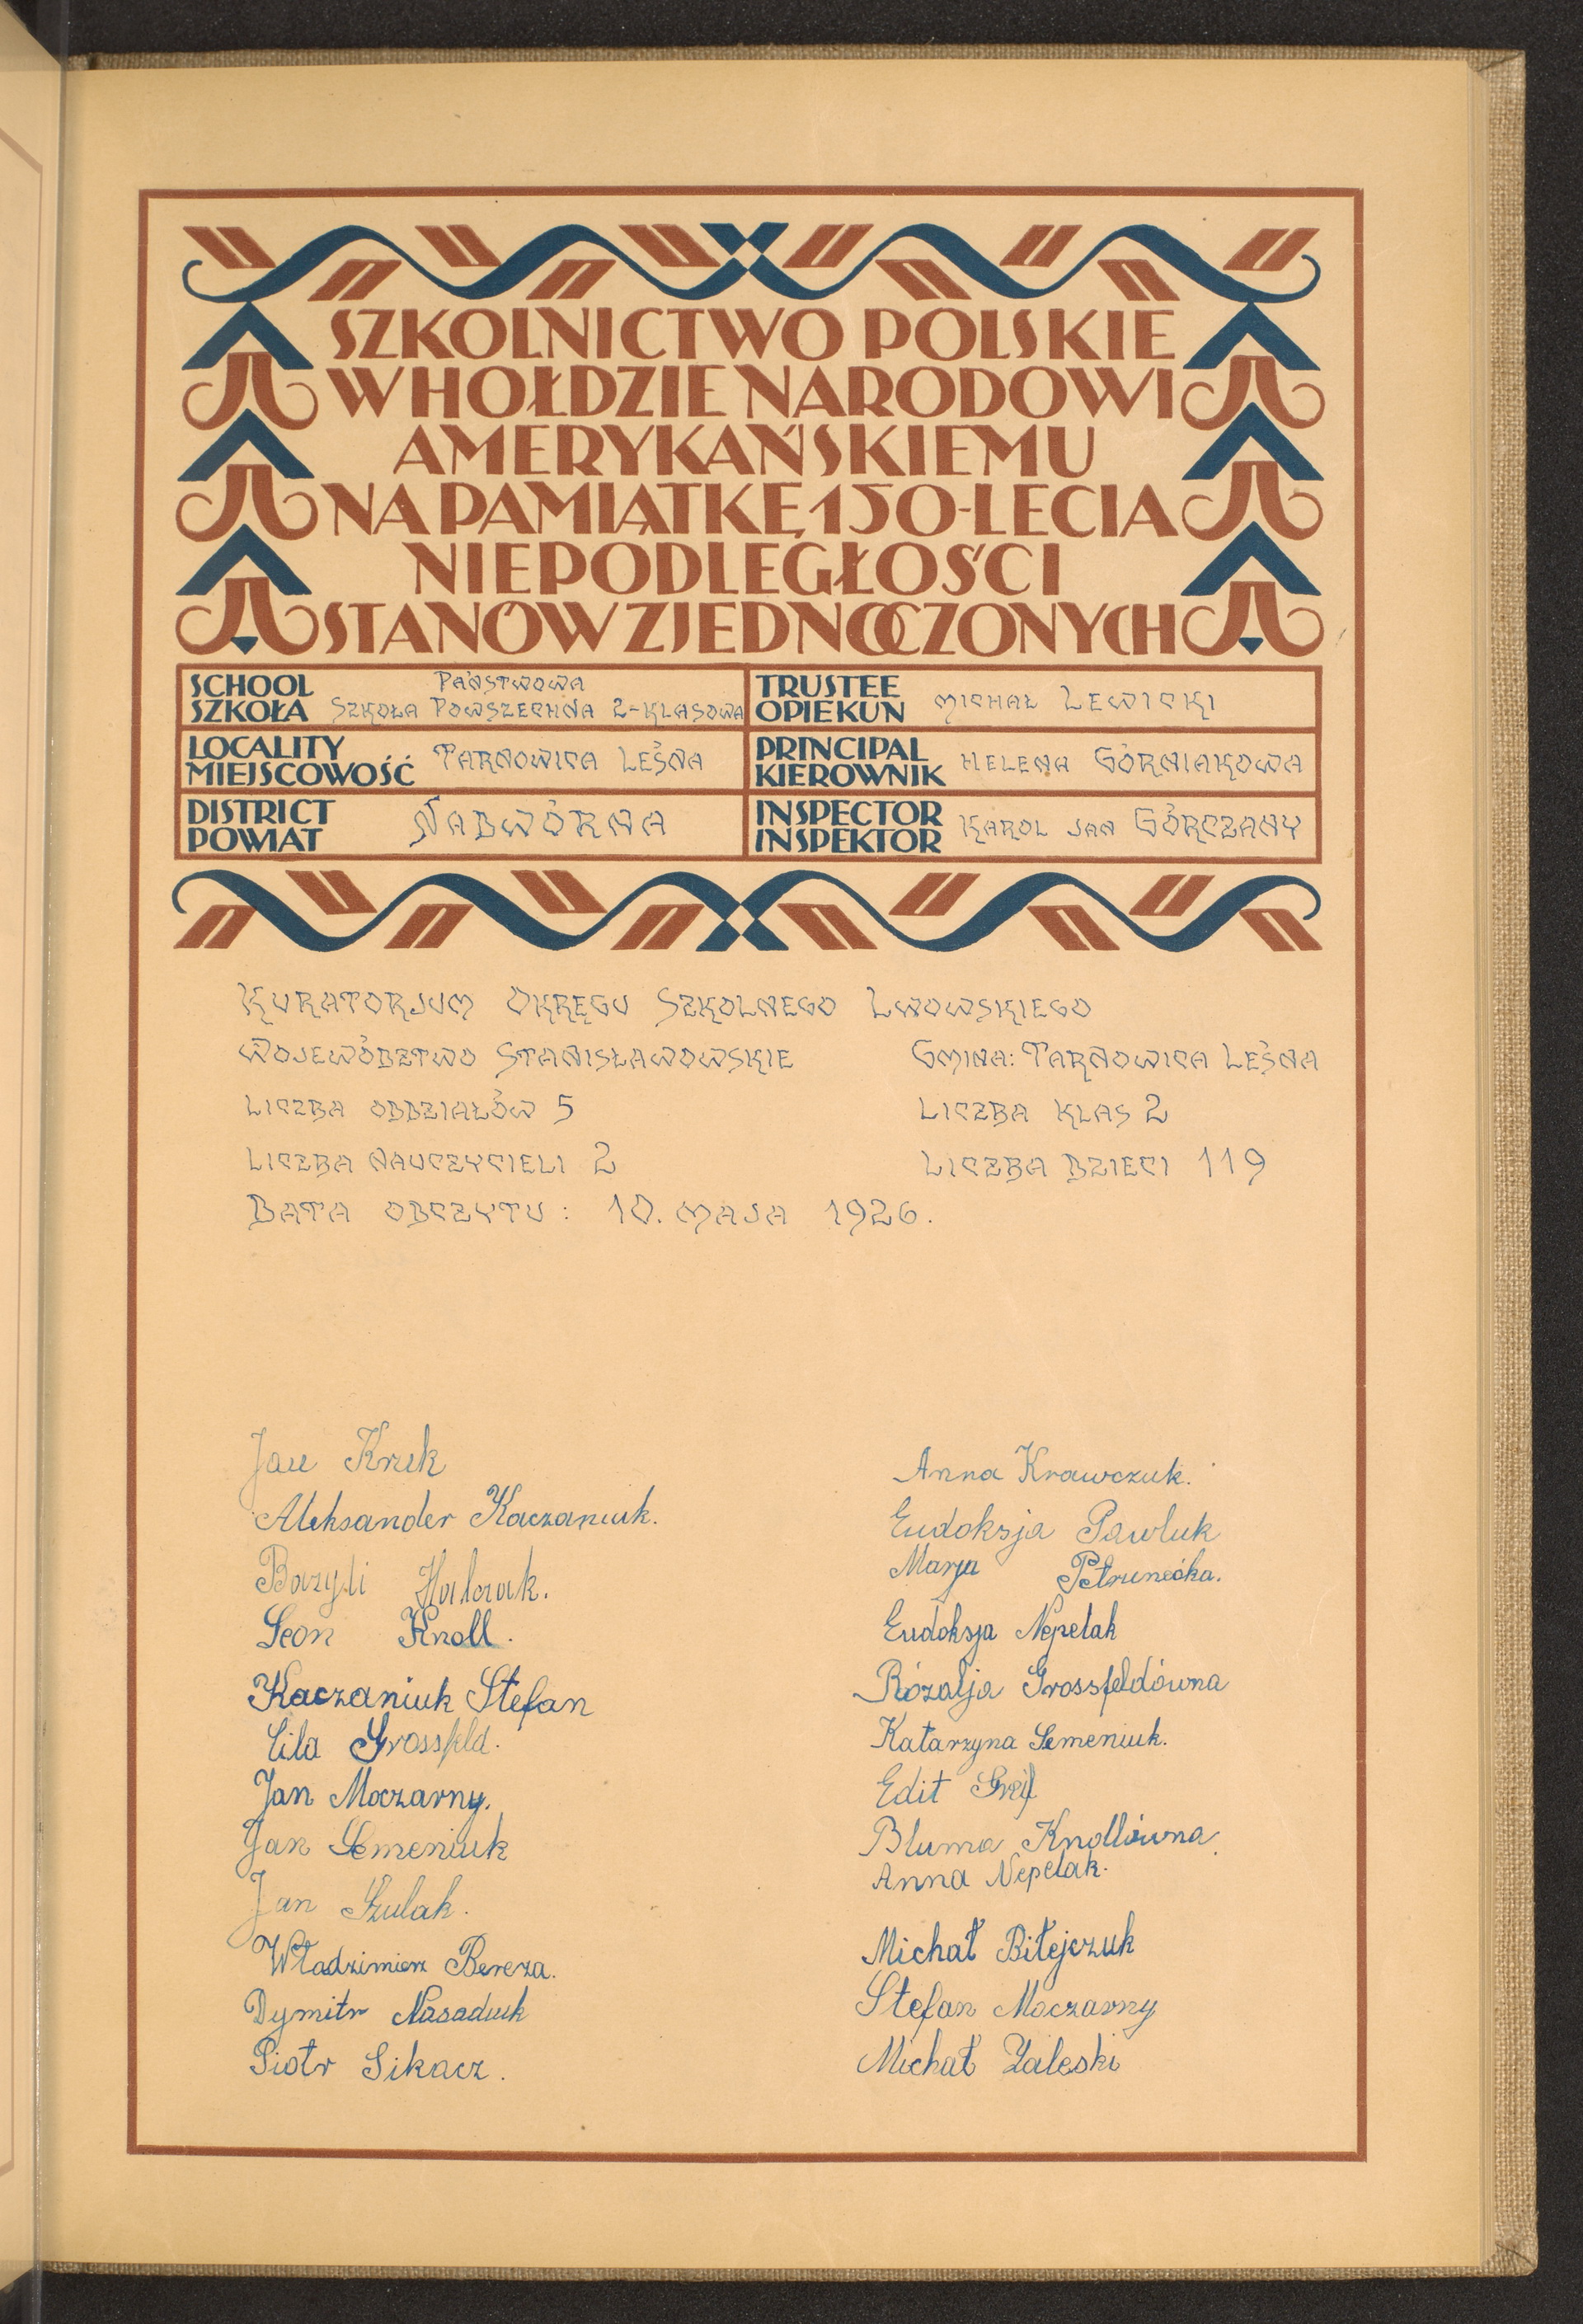 SZKOLNICTWO POLSKIE
W HOŁDZIE NARODOWI
AMERYKAŃSKIEMU
NA PAMIĄTKĘ 150-LECIA
NIEPODLEGŁOŚCI
STANÓW ZJEDNOCZONYCH
SCHOOL
SZKOŁA
PAŃSTWOWA
SZKOŁA POWSZECHNA 2-KLASOWA
TRUSTEE
OPIEKUN
MICHAŁ LEWICKI
LOCALITY
MIEJSCOWOŚĆ
TARNOWICA LEŚNA
PRINCIPAL
KIEROWNIK
HELENA GÓRNIAKOWA
DISTRICT
POWIAT
NADWÓRNA
INSPECTOR
INSPEKTOR
KAROL JAN GÓRCZANY
KURATORJUM OKRĘGU SZKOLNEGO LWOWSKIEGO
WOJEWÓDZTWO STANISŁAWOWSKIE
GMINA: TARNOWICA LEŚNA
LICZBA ODDZIAŁÓW 5
LICZBA KLAS 2
LICZBA NAUCZYCIELI 2
LICZBA DZIECI 119
DATA ODCZYTU: 10. MAJA 1926.
Jan Kruk
Aleksander Kaczaniuk.
Bazyli
Leon Knoll.
Kaczaniuk Stefan
Lila Grossfeld.
Jan Moczarny.
Jan Semeniuk
Jan Szulak.
Władzimierz Bereza.
Dymitr Nasaduk
Piotr Sikacz.
Anna Krawczuk.
Eudoksja Pawluk
Marja
Eudoksja Nepelak
Rózalja Grossfeldówna
Katarzyna Semeniuk.
Edit Greif
Bluma Knollówna.
Anna Nepelak.
Michał Biłejczuk
Stefan Moczarny
Michał Zaleski